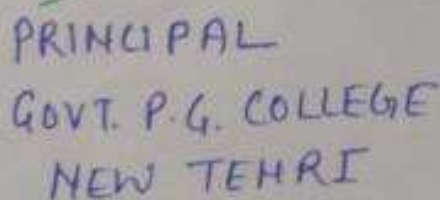 PRINCIPAL
GOVT. P.G. COLLEGE
NEW TEHRI